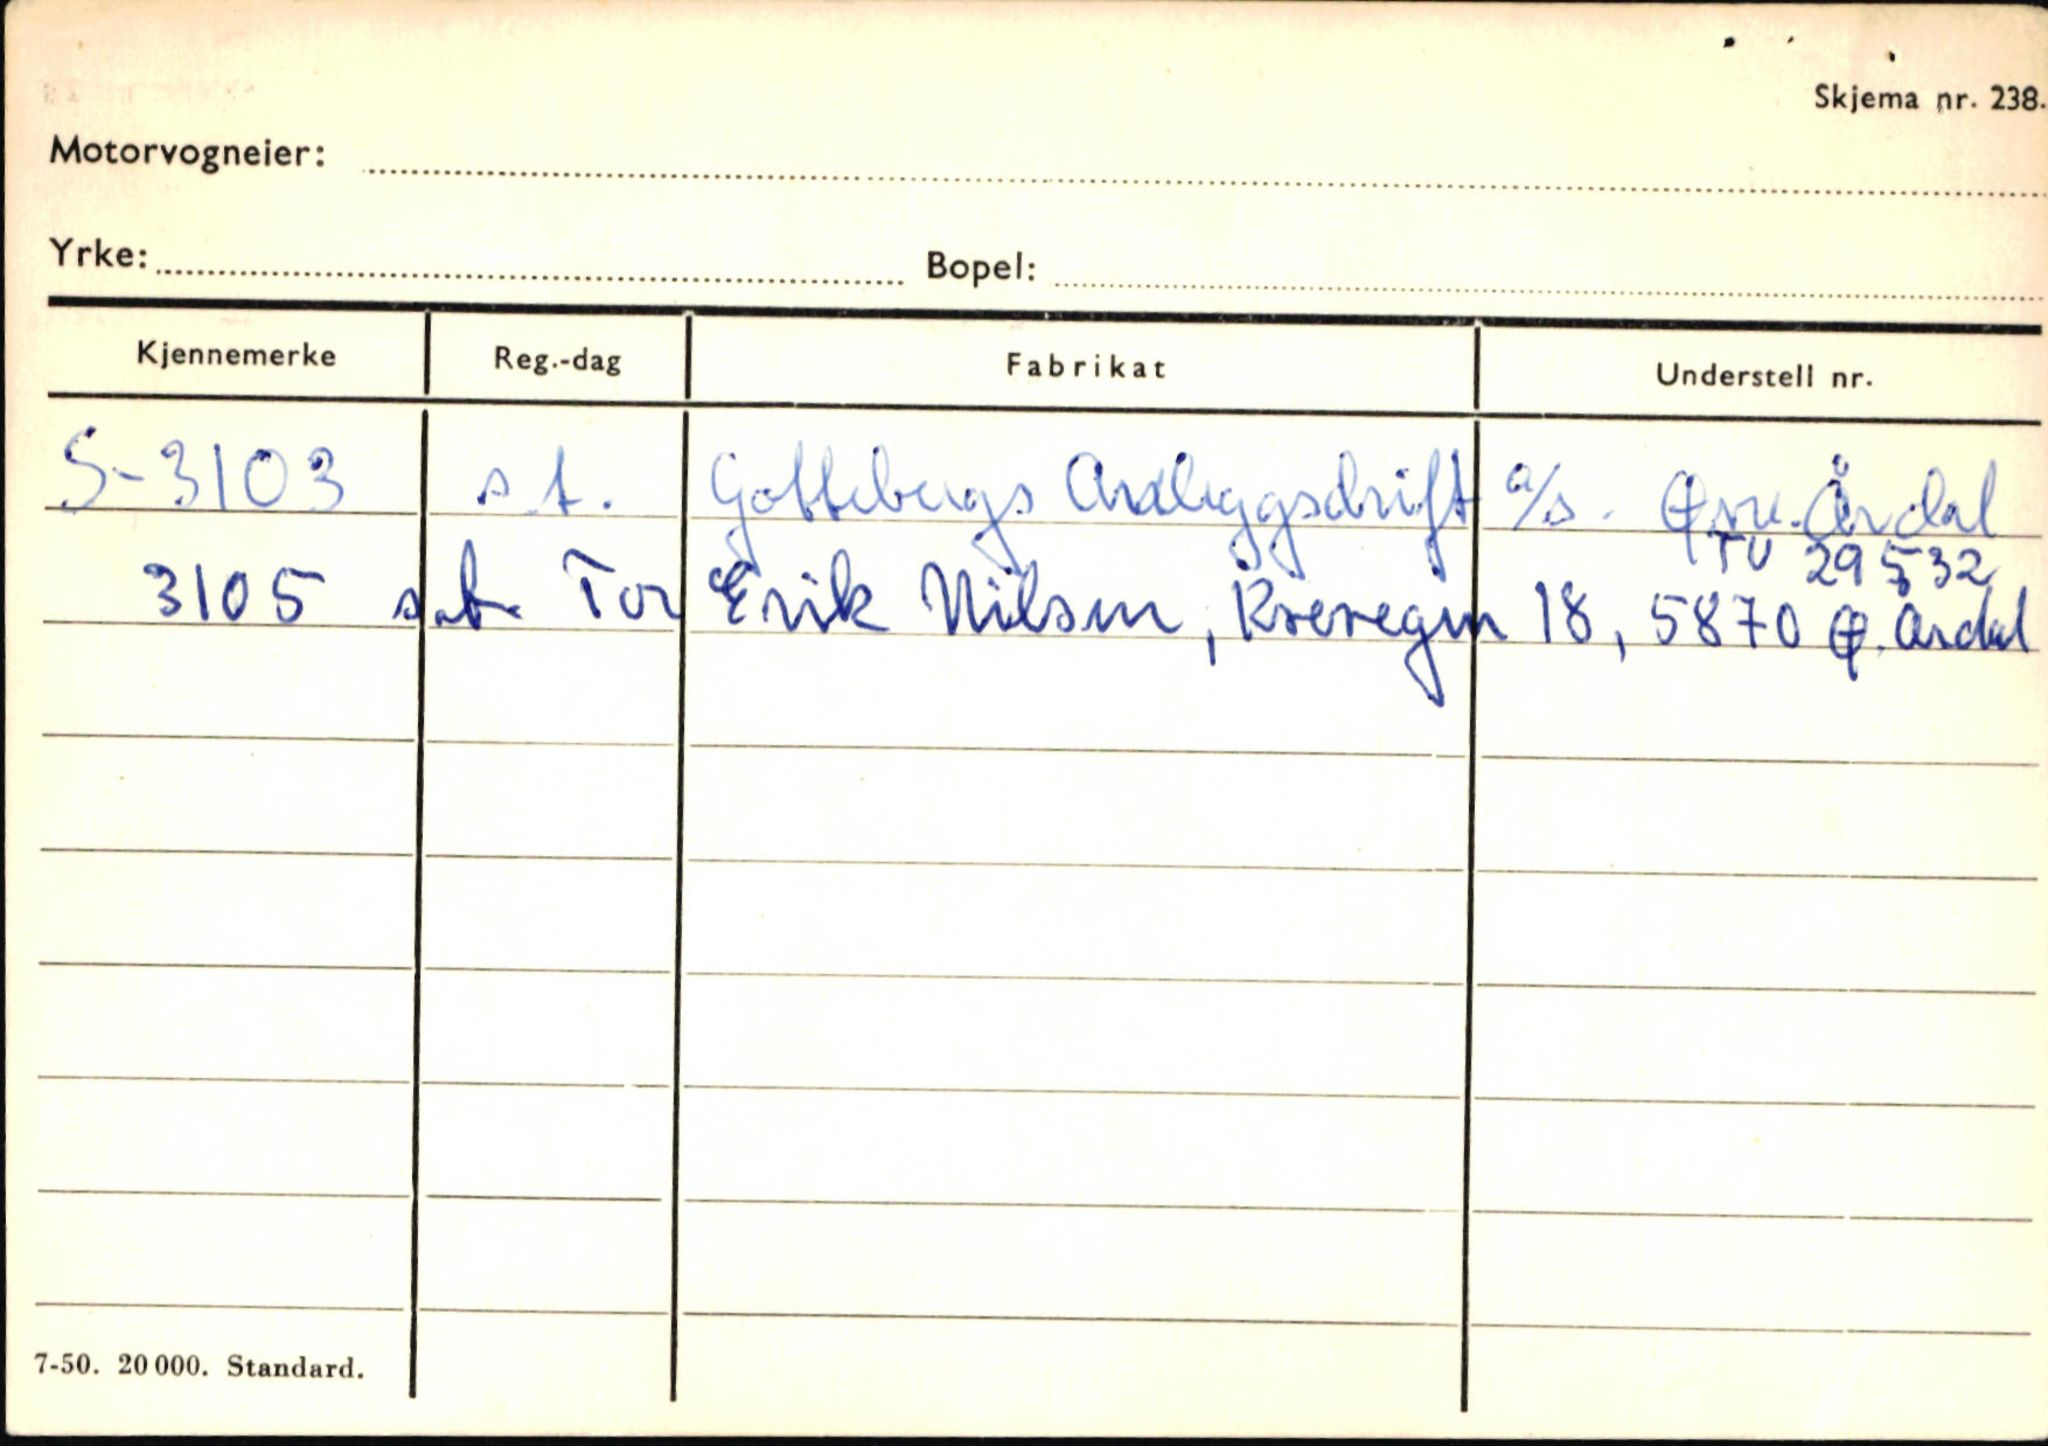 Skjema nr. 238.
Motorvogneier:
Yrke: Bopel:
Kjennemerke Reg.-dag Fabrikat Understell nr.
S-3103 s.t. Gottebergs Anleggsdrift a/s. Øvre. Årdal
TU 29532
3105 s.t. Tor Erik Nilsen, Kreregen 18, 5870 Ø. Årdal
7-50. 20 000. Standard.